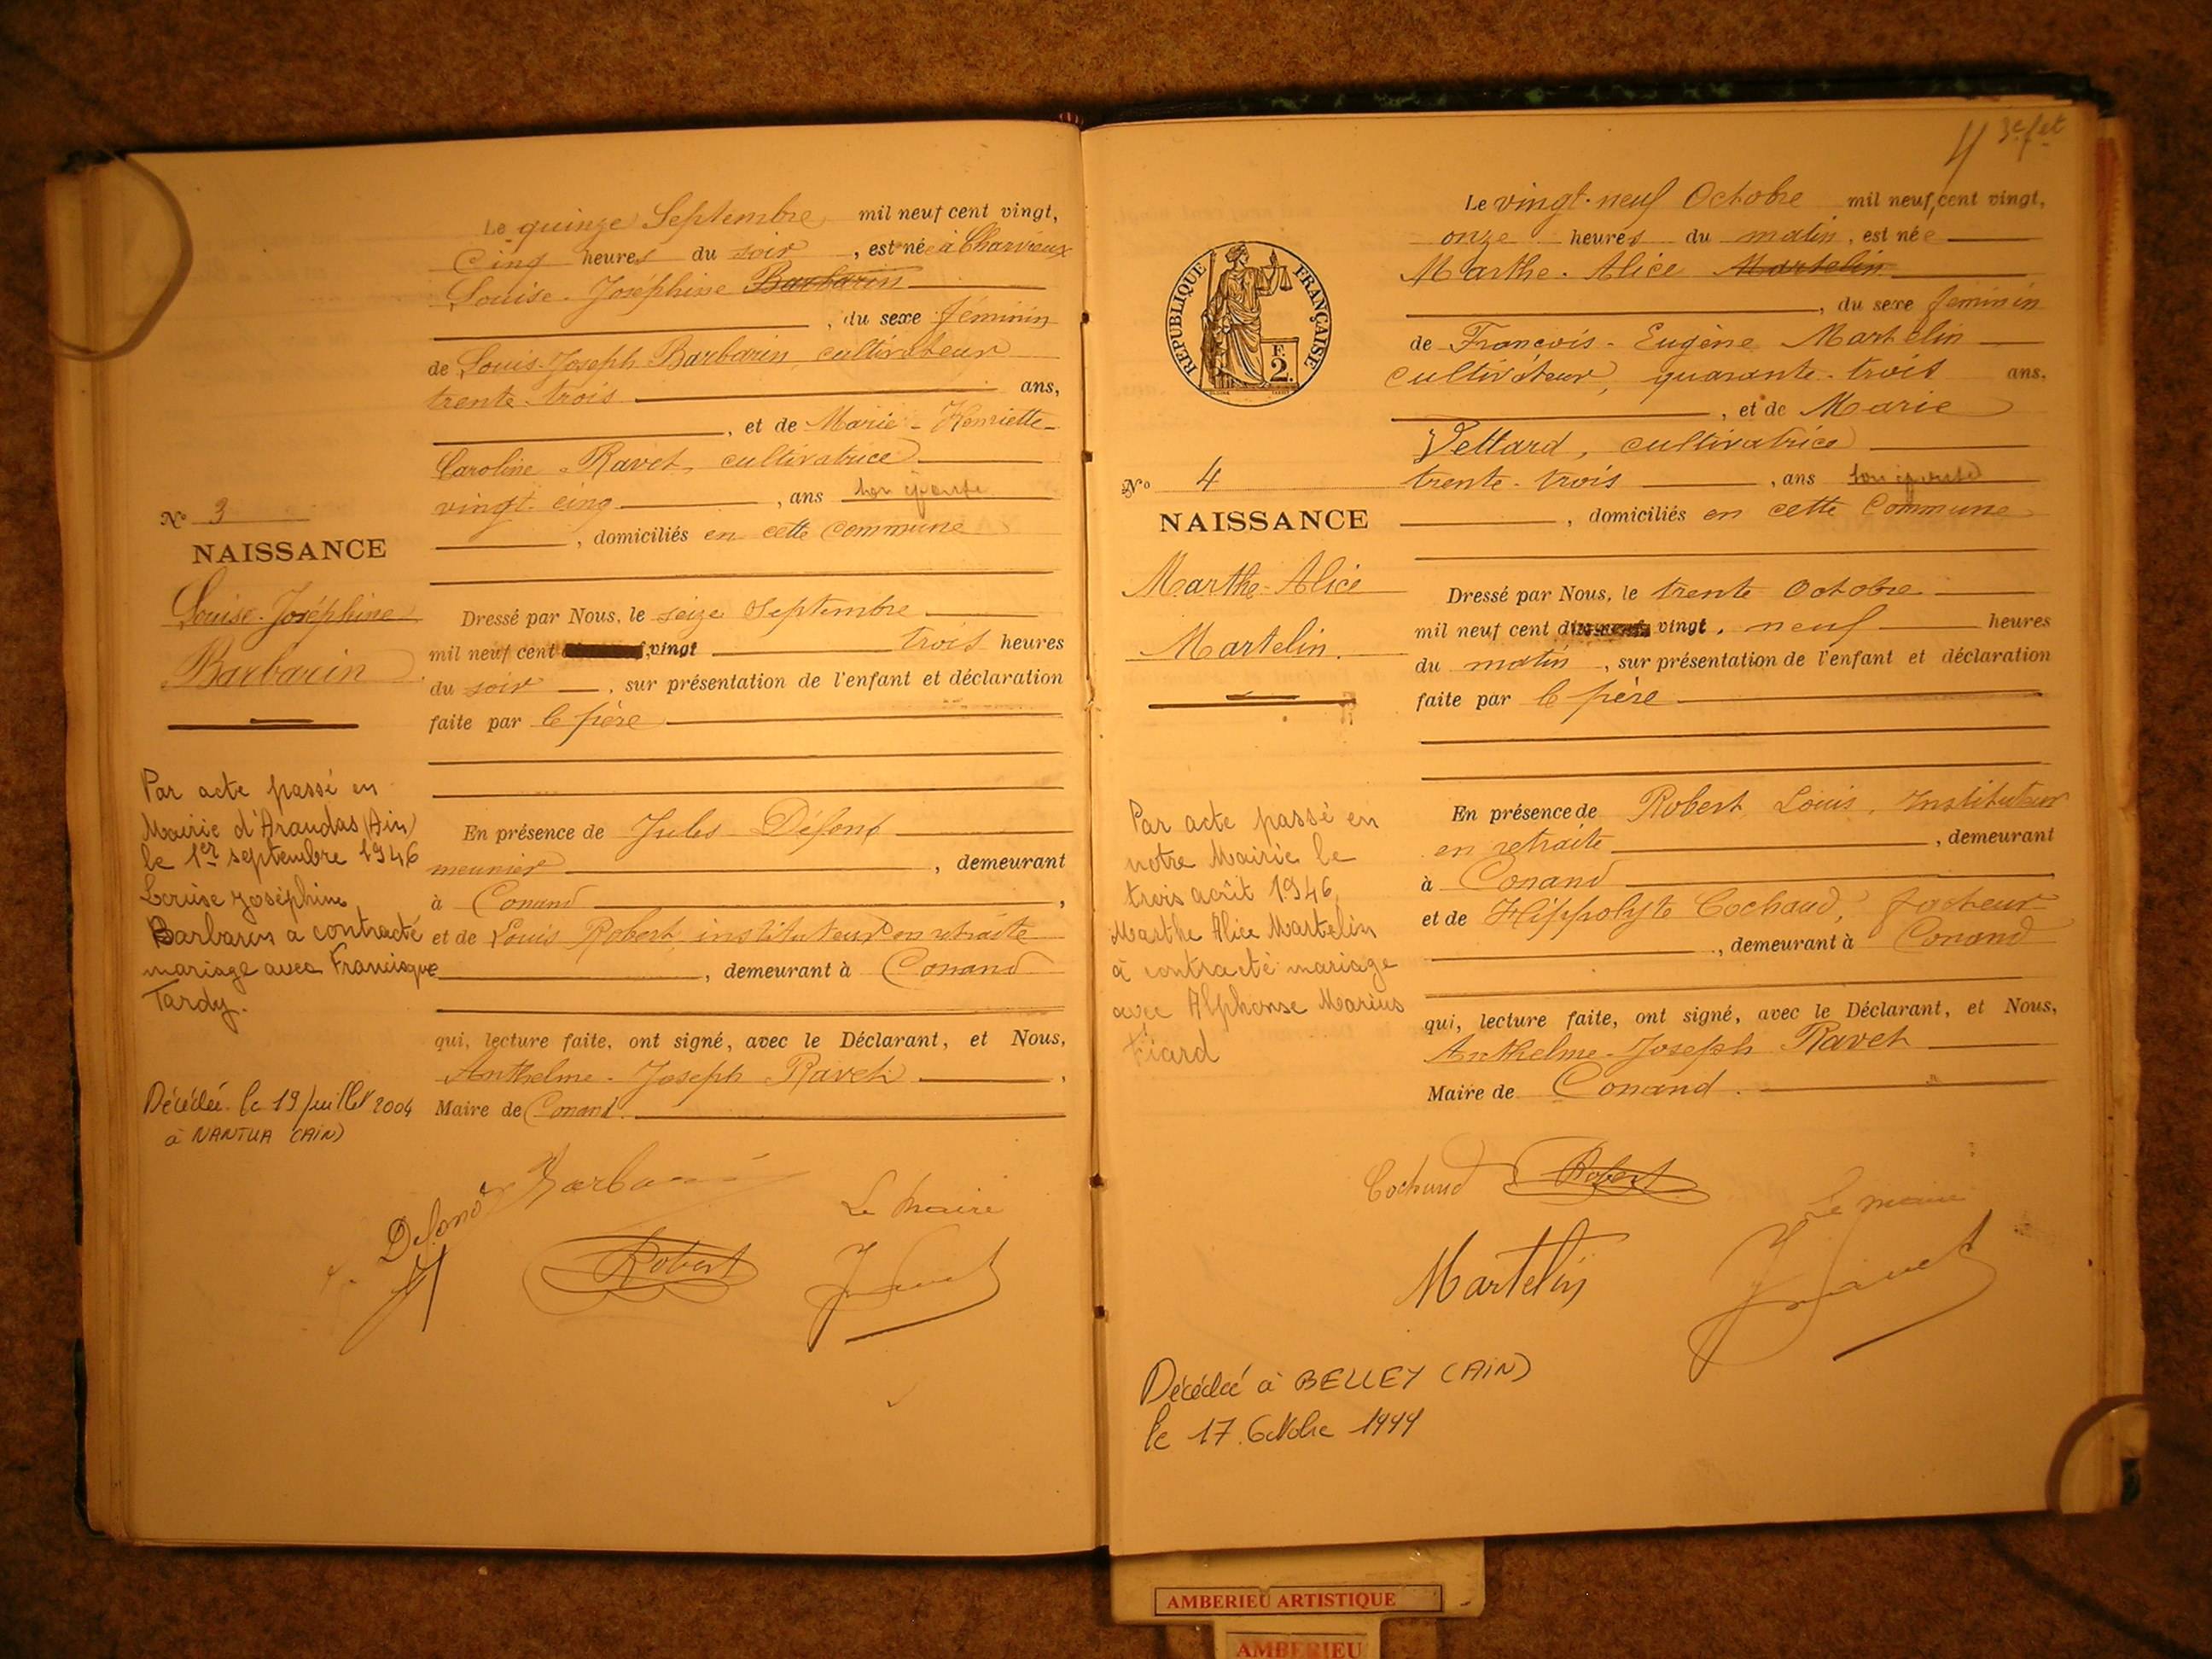 Le quinze Septembre mil neuf cent vingt,
Cinq heures du soir, est née à Charvieux
Louise-Joséphine Barbarin
, du sexe féminin
de Louis-Joseph Barbarin, cultivateur
trente-trois ans,
, et de Marie-Henriette-
Caroline Ravet, cultivatrice
vingt-cinq, ans son épouse
, domiciliés en cette commune
No 3
NAISSANCE
Louise-Joséphine
Barbarin
Dressé par Nous, le seize Septembre
mil neuf cent vingt trois heures
du soir, sur présentation de l'enfant et déclaration
faite par le père
En présence de Jules Défont
meunier, demeurant
à Conand,
et de Louis Robert, instituteur en retraite
, demeurant à Conand
qui, lecture faite, ont signé, avec le Déclarant, et Nous,
Anthelme-Joseph Ravet,
Maire de Conand.
Par acte passé en
Mairie d'Arandas (Ain)
le 1er septembre 1946
Louise Joséphine
Barbarin a contracté
mariage avec Francisque
Tardy.
Décédée le 19 Juillet 2004
à NANTUA (AIN)
Barbarin
Le Maire
Robert
4 3e fet
Le vingt-neuf Octobre mil neuf cent vingt,
onze heures du matin, est née
Marthe-Alice Martelin
, du sexe féminin
de François-Eugène Martelin
cultivateur, quarante-trois ans,
, et de Marie
Vettard, cultivatrice
trente-trois, ans son épouse
, domiciliés en cette Commune
REPUBLIQUE FRANÇAISE
F.
2.
No 4
NAISSANCE
Marthe-Alice
Martelin.
Dressé par Nous, le trente Octobre
mil neuf cent vingt, neuf heures
du matin, sur présentation de l'enfant et déclaration
faite par le père
En présence de Robert Louis, Instituteur
en retraite, demeurant
à Conand
et de Hippolyte Cochaud, facteur
, demeurant à Conand
qui, lecture faite, ont signé, avec le Déclarant, et Nous,
Anthelme-Joseph Ravet
Maire de Conand.
Par acte passé en
notre Mairie le
trois août 1946
Marthe Alice Martelin
a contracté mariage
avec Alphonse Marius
Cochaud Robert
Le maire
Martelin
J Ravet
Décédée à BELLEY (AIN)
le 17 Octobre 1999
AMBERIEU ARTISTIQUE
AMBERIEU